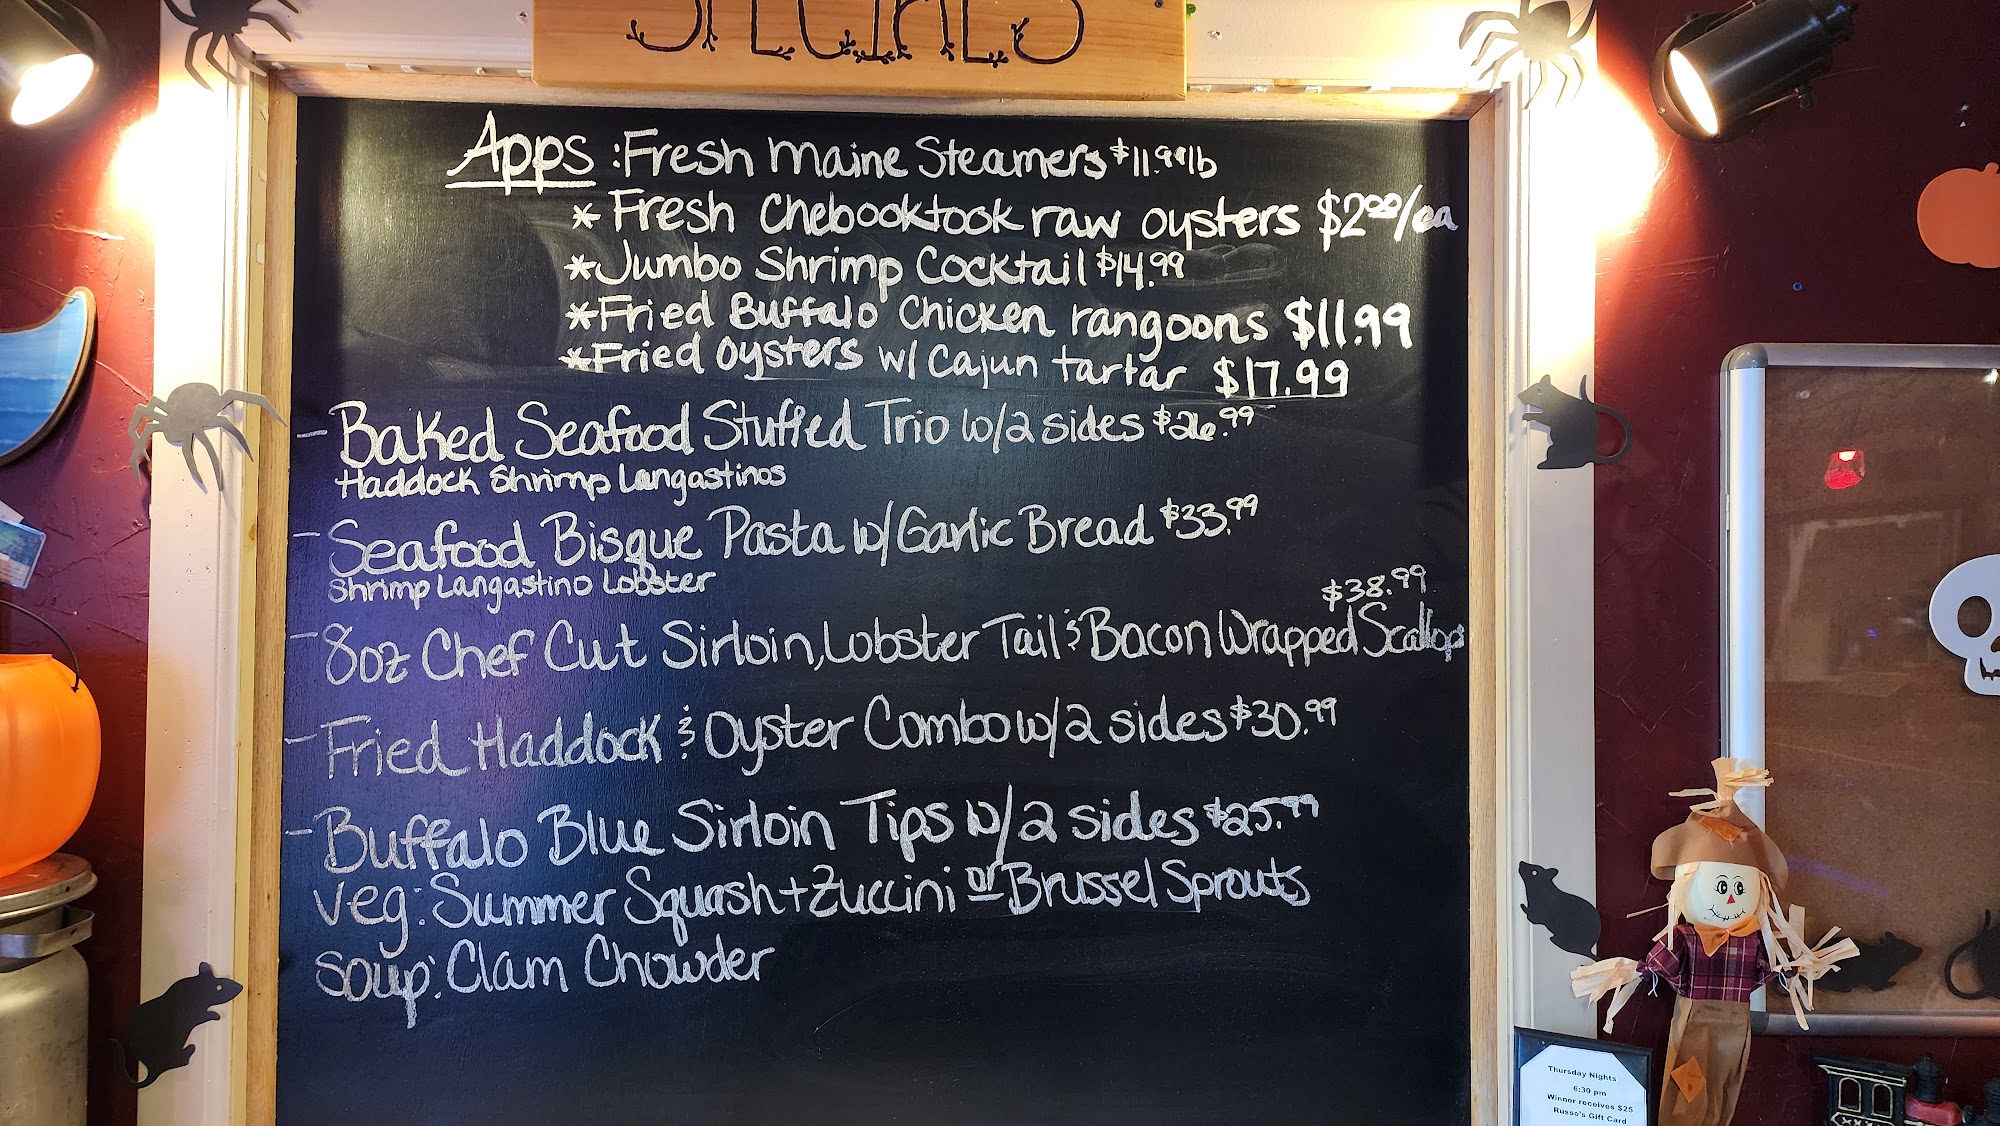 SPECIALS
Apps : Fresh Maine Steamers $11.99 lb
* Fresh Chebooktook raw oysters $2.00/ea
* Jumbo Shrimp Cocktail $14.99
* Fried Buffalo Chicken rangoons $11.99
* Fried oysters w/ Cajun tartar $17.99
- Baked Seafood Stuffed Trio w/2 sides $26.99
Haddock Shrimp Langastinos
- Seafood Bisque Pasta w/Garlic Bread $33.99
Shrimp Langastino Lobster
$38.99
- 8oz Chef Cut Sirloin, Lobster Tail & Bacon Wrapped Scallops
- Fried Haddock & Oyster Combo w/2 sides $30.99
- Buffalo Blue Sirloin Tips w/2 sides $25.99
Veg: Summer Squash + Zuccini or Brussel Sprouts
Soup: Clam Chowder
Thursday Nights
6:30 pm
Winner receives $25
Russo's Gift Card